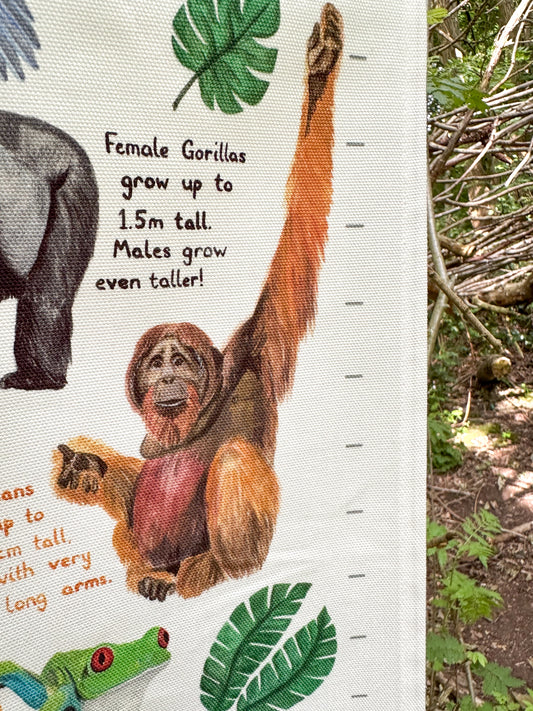 Female Gorillas
grow up to
1.5m tall.
Males grow
even taller!
ans
up to
cm tall.
with very
long arms.